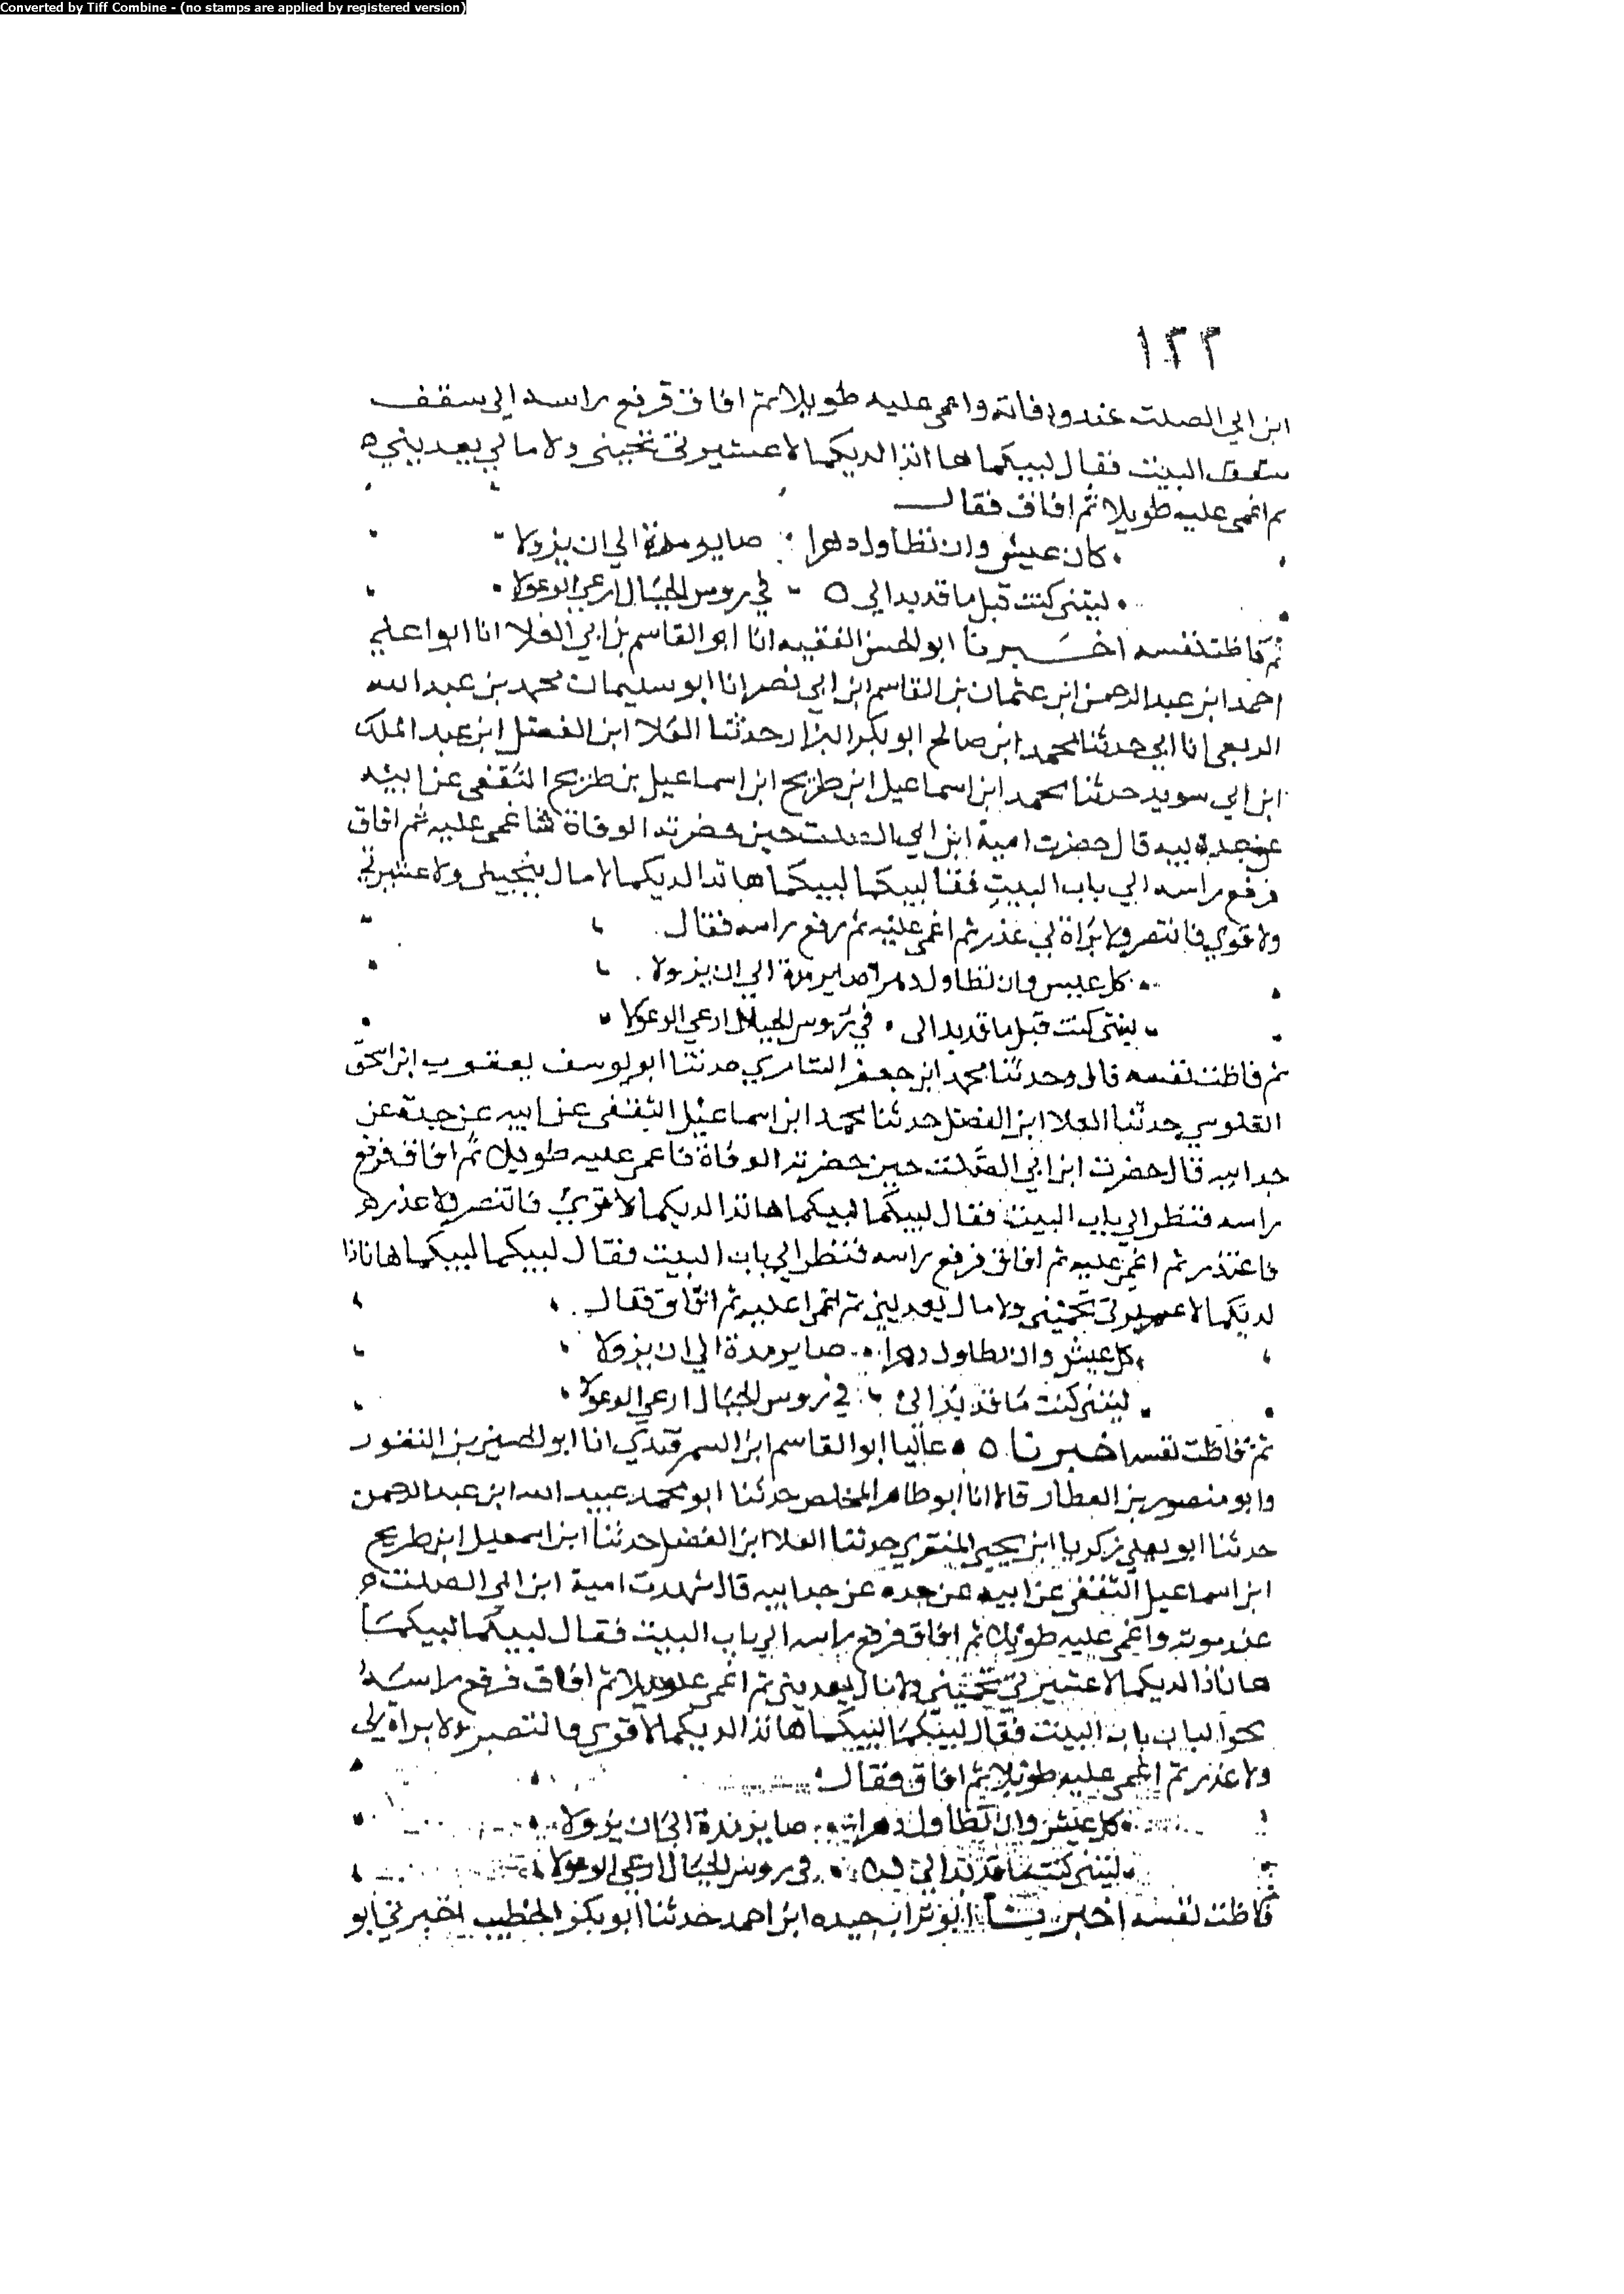 Converted by Tiff Combine - (no stamps are applied by registered version)
١٢٢
ابن ابي الصلت عند وفاته واغمى عليه طويلا ثم افاق فرفع راسه الى سقف
سقف البيت فقال لبيكما ها انذا لديكما لا عشيرتى تحميني ولا مالي يعديني ه
ثم اغمى عليه طويلا ثم افاق فقال
كان عيش وان تطاول دهرا صاير مدة الي ان يزولا
ليتنى كنت قبل ما قد بدا لي في روس الجبال ارعي الوعولا
ثم فاظت نفسه اخبرنا ابو الحسن الفقيه انا ابو القاسم بن ابي العلا انا ابوا علي
احمد ابن عبد الرحمن ابن عثمان بن القاسم ابن ابي نصر انا ابو سليمان محمد بن عبد الله
الربعى انا ابي حدثنا محمد ابن صالح ابو بكر البزار حدثنا العلا ابن الفضل ابن عبد الملك
ابن ابي سويد حدثنا محمد ابن اسماعيل ابن طريح ابن اسماعيل بن طريح الثقفى عن ابيه
عن جد ابيه قال حضرت امية ابن ابي الصلت حين حضرته الوفاة فاغمى عليه ثم افاق
فرفع راسه الي باب البيت فقال لبيكما لبيكما هانذا لديكما لا مال ينجيني ولا عشيرتي
ولا قوي فانتصر ولا براة لي عذر ثم اغمى عليه ثم رفع راسه فقال
كل عيش وان تطاول دهرا صاير مدة الي ان يزولا
ليتنى كنت قبل ما قد بدا لى في روس الجبال ارعي الوعولا
ثم فاظت نفسه قال وحدثنا محمد ابن جعفر السامري حدثنا ابو يوسف يعقوب ابن اسحق
القلوسي حدثنا العلا ابن الفضل حدثنا محمد ابن اسماعيل الثقفى عن ابيه عن جده عن
جد ابيه قال حضرت ابن ابي الصلت حين حضرته الوفاة فاغمى عليه طويلا ثم افاق فرفع
راسه فنظر الى باب البيت فقال لبيكما لبيكما هانذا لديكما لا قوي فانتصر ولا عذر
فاعتذر ثم اغمى عليه ثم افاق فرفع راسه فنظر الي باب البيت فقال لبيكما لبيكما هاناذا
لديكما لا عشيرتى تحميني ولا مال يعديني ثم اغمى عليه ثم افاق فقال
كل عيش وان تطاول دهرا صاير مدة الي ان يزولا
ليتنى كنت ما قد بدا لي في روس الجبال ارعي الوعولا
ثم فاظت نفسه اخبرنا عاليا ابو القاسم ابن السمرقندي انا ابو الحسين بن النقور
وابو منصور بن العطار قالا انا ابو طاهر المخلص حدثنا ابو محمد عبيد الله ابن عبد الرحمن
حدثنا ابو يعلي زكريا ابن يحيى المنقري حدثنا العلا ابن الفضل حدثنا ابن اسمعيل ابن طريح
ابن اسماعيل الثقفى عن ابيه عن جده عن جد ابيه قال شهدت امية ابن ابي الصلت ه
عند موته واغمى عليه طويلا ثم افاق فرفع راسه الي باب البيت فقال لبيكما لبيكما
هاناذا لديكما لا عشيرتي تحميني ولا مال يعديني ثم اغمى طويلا ثم افاق فرفع راسه
نحو الباب باب البيت فقال لبيكما لبيكما هانذا لديكما لا قوي فانتصر ولا براة لي
ولا عذر ثم اغمى عليه طويلا ثم افاق فقال
كل عيش وان تطاول دهرا صاير مدة الي ان يزولا
ليتنى كنت ما قد بدا لي في روس الجبال ارعي الوعولا
فاظت نفسه اخبرنا ابو تراب حيدره ابن احمد حدثنا ابو بكر الخطيب اخبرني ابو